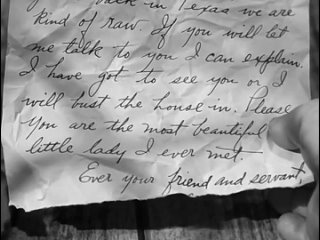 back in Texas we are
kind of raw. If you will let
me talk to you I can explain.
I have got to see you or I
will bust the house in. Please
You are the most beautiful
little lady I ever met.
Ever your friend and servant,